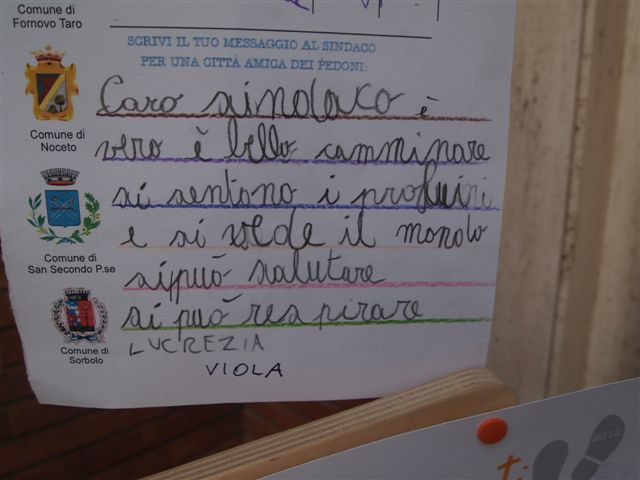 Comune di
Fornovo Taro
SCRIVI IL TUO MESSAGGIO AL SINDACO
PER UNA CITTÀ AMICA DEI PEDONI:
Caro sindaco è
Comune di
Noceto
vero è bello camminare
si sentono i profumini
e si vede il mondo
Comune di
San Secondo P.se
si può salutare
si può respirare
Comune di
Sorbolo
LUCREZIA
VIOLA
2012